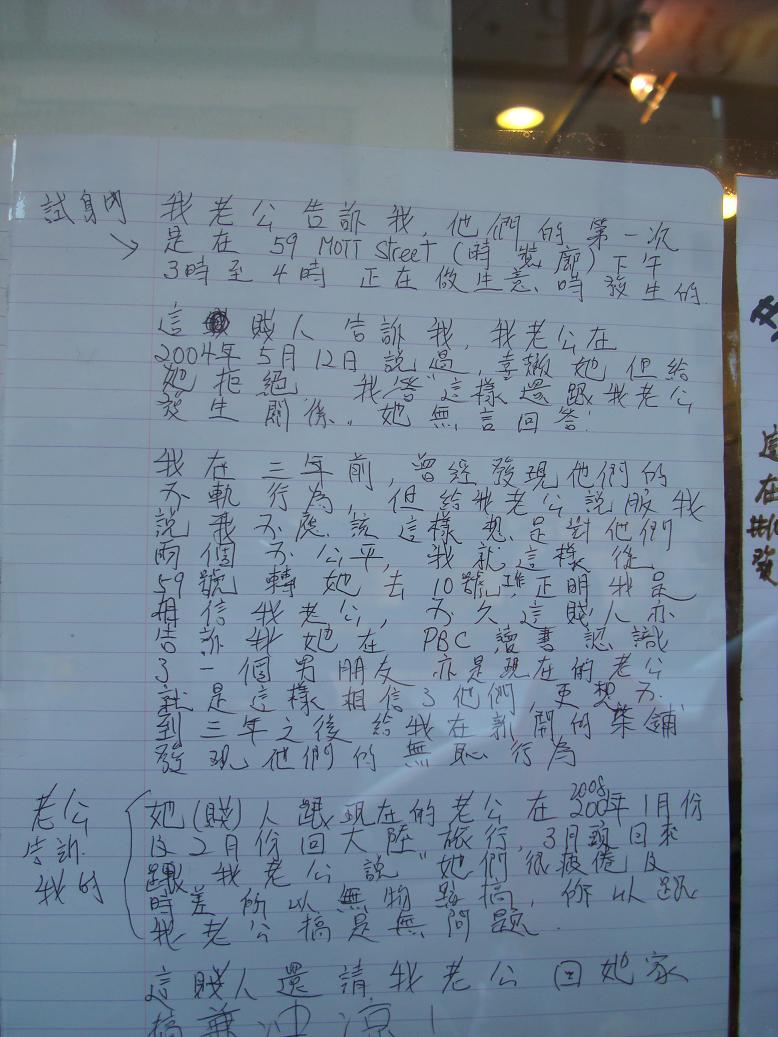 試身內 → 我老公告訴我,他們的第一次
是在 59 MOTT Street (時裝廊) 下午
3時至4時 正在做生意時發生的
這賤人告訴我,我老公在
2004年5月12日說過,喜歡她但給
她拒絕 我答"這樣還跟我老公
發生關係,她無言回答!
我在三年前,曾經發現他們的
不軌行為,但給我老公說服我
說我不應該這樣想,是對他們
兩個不公平,我就這樣從
59號轉她去10號,正明我是
相信我老公,不久這賤人亦
告訴我她在 PBC 讀書認識
了一個男朋友亦是現在的老公
就是這樣相信了他們,更想不
到三年之後給我在新開的葉舖
發現他們的無恥行為
老公
告訴
我的
她(賤)人跟現在的老公在2008年1月份
及2月份回大陸旅行,3月頭回來
跟我老公說"她們很疲倦及
時差所以無物搞,所以跟
我老公搞是無問題.
這賤人還請我老公回她家
搞兼沖涼!
在
發